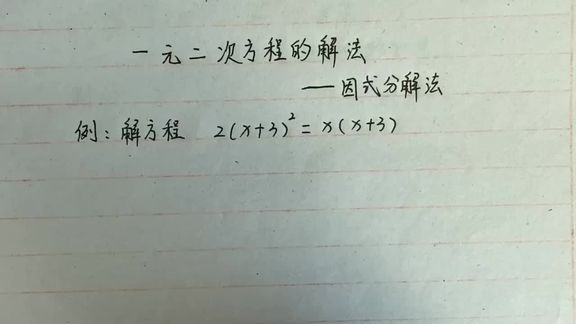 一元二次方程的解法
——因式分解法
例:解方程 2(x+3)²=x(x+3)